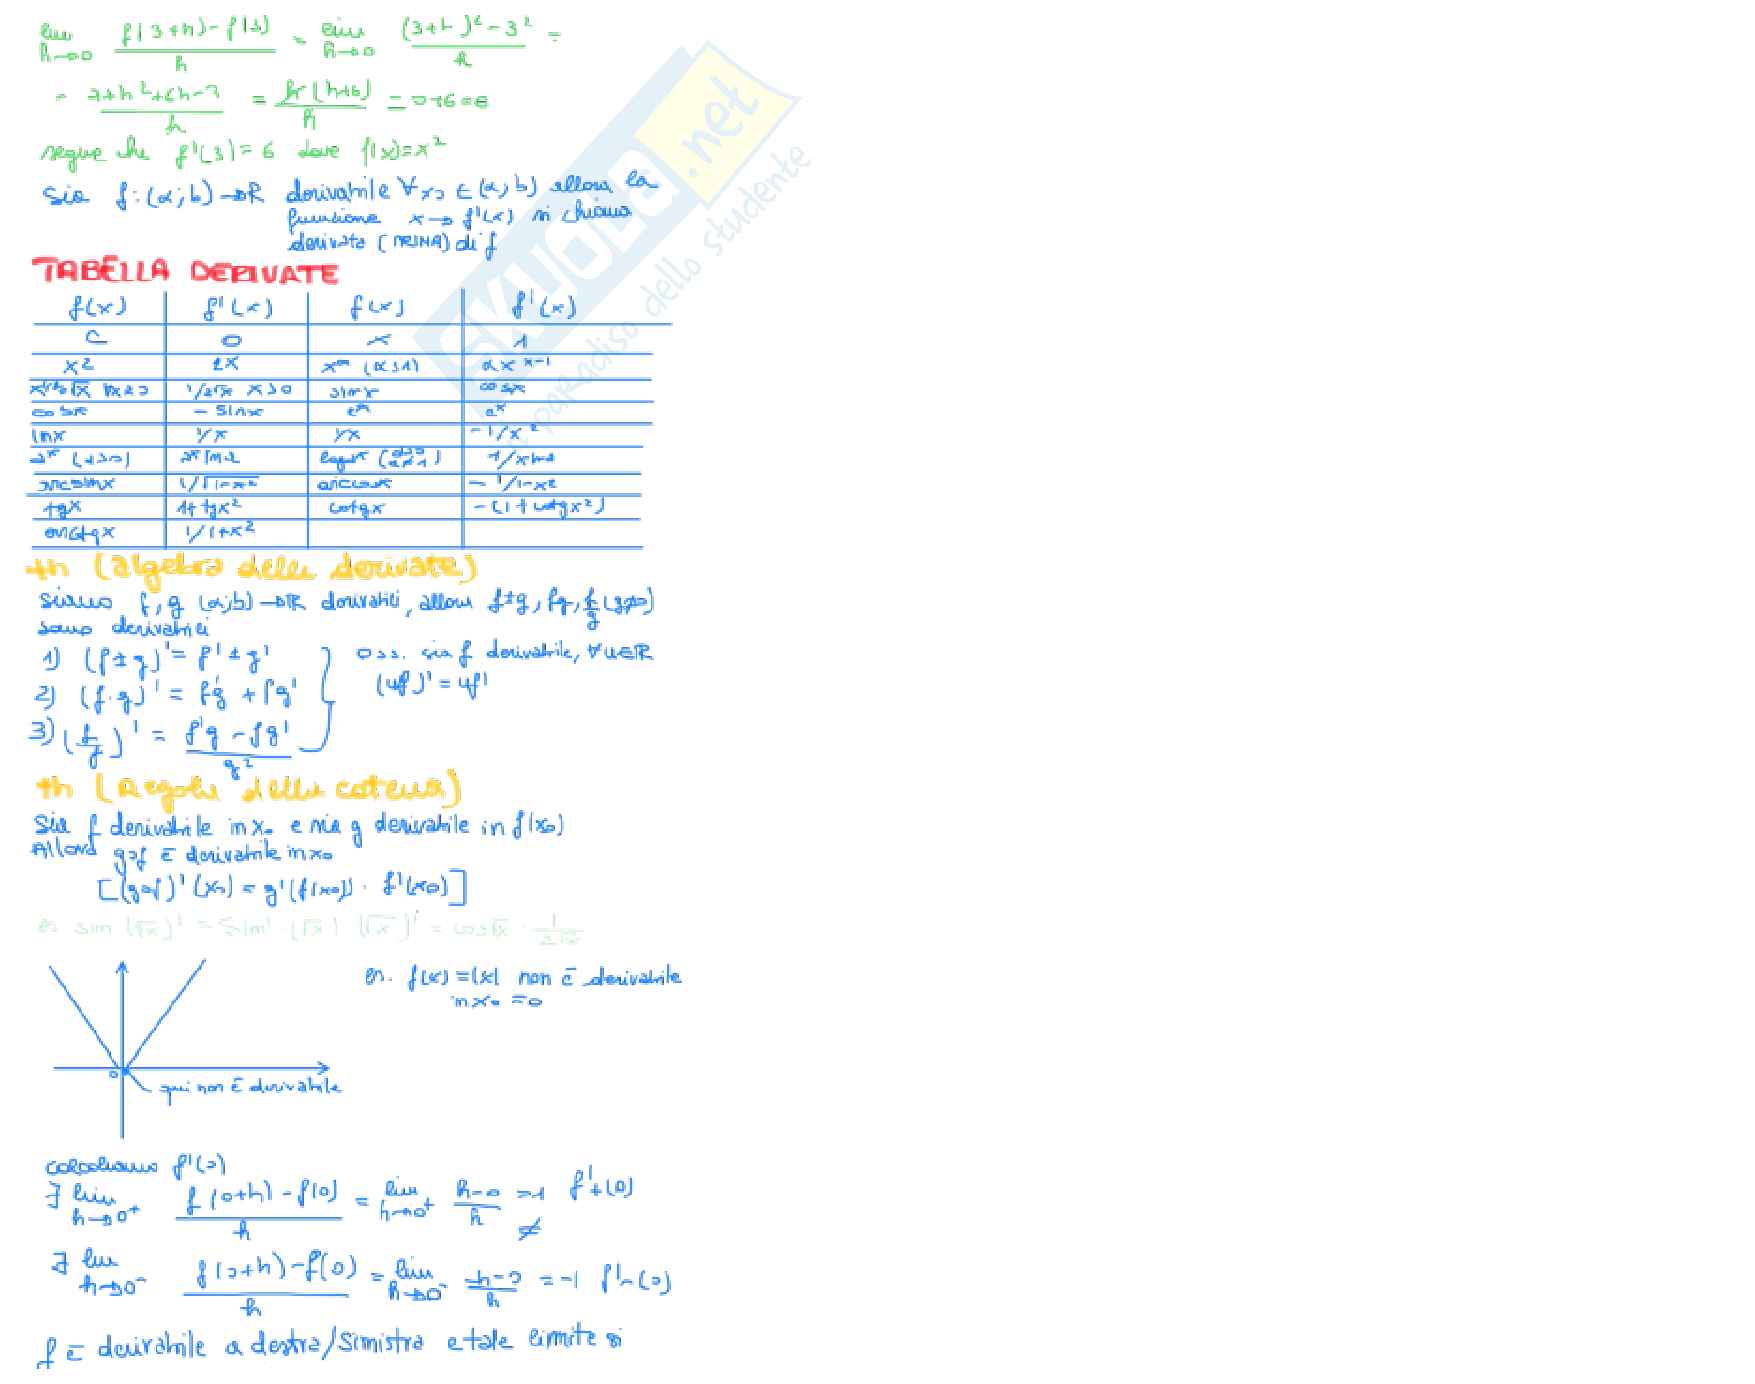 lim h→0 f(3+h)-f(3) / h = lim h→0 (3+h)² - 3² / h =
= 9+h²+6h-9 / h = h(h+6) / h = 0+6=6
segue che f'(3)=6 dove f(x)=x²
Sia f:(a;b)→R derivabile ∀x₀∈(a;b) allora la
funzione x→f'(x) si chiama
derivata (PRIMA) di f
TABELLA DERIVATE
f(x) f'(x) f(x) f'(x)
C 0 x 1
x² 2x xᵅ (α≥1) αxᵅ⁻¹
√x 1/2√x x>0 sinx cosx
cosx -sinx eˣ eˣ
lnx 1/x 1/x -1/x²
aˣ (a>0) aˣlna logax 1/xlna
arcsinx 1/√1-x² arccosx -1/1-x²
tgx 1+tgx² cotgx -(1+cotgx²)
arctgx 1/1+x²
th (algebra delle derivate)
siano f,g (a;b)→R derivabili, allora f±g, fg, f/g (g≠0)
sono derivabili
1) (f±g)'=f'±g' oss. sia f derivabile, ∀u∈R
2) (f·g)'=f'g+fg' (uf)'=uf'
3) (f/g)' = f'g-fg' / g²
th (Regola della catena)
Sia f derivabile in x₀ e sia g derivabile in f(x₀)
Allora g∘f è derivabile in x₀
[(g∘f)'(x₀)=g'(f(x₀))·f'(x₀)]
es sin(√x)' = sin'·(√x) (√x)' = cos√x · 1/2√x
es. f(x)=|x| non è derivabile
in x₀=0
0
qui non è derivabile
calcoliamo f'(0)
∃ lim h→0⁺ f(0+h)-f(0) / h = lim h→0⁺ h-0 / h =1 f'+(0)
≠
∃ lim h→0⁻ f(0+h)-f(0) / h = lim h→0⁻ -h-0 / h = -1 f'-(0)
f è derivabile a destra/sinistra e tale limite si
SKUOLA.net
il paradiso dello studente